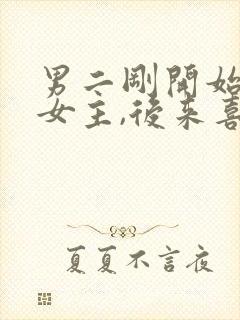 男二剛開始
女主,後來喜
夏夏不言夜